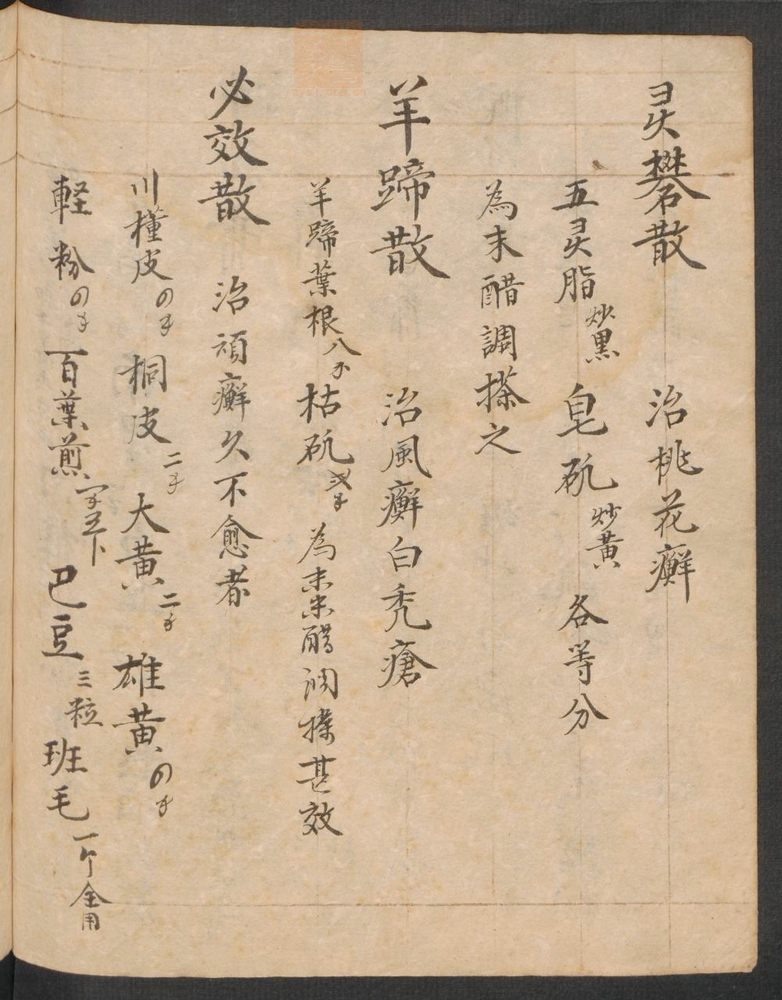 灵礬散　治桃花癬
五灵脂炒黑　皂矾炒黄　各等分
為末醋調搽之
羊蹄散　治風癬白禿瘡
羊蹄葉根八　枯矾　為末米醋調搽甚效
必效散　治頑癬久不愈者
川槿皮　桐皮二　大黄二　雄黄
軽粉　百葉煎　巴豆三粒　班毛一个全用